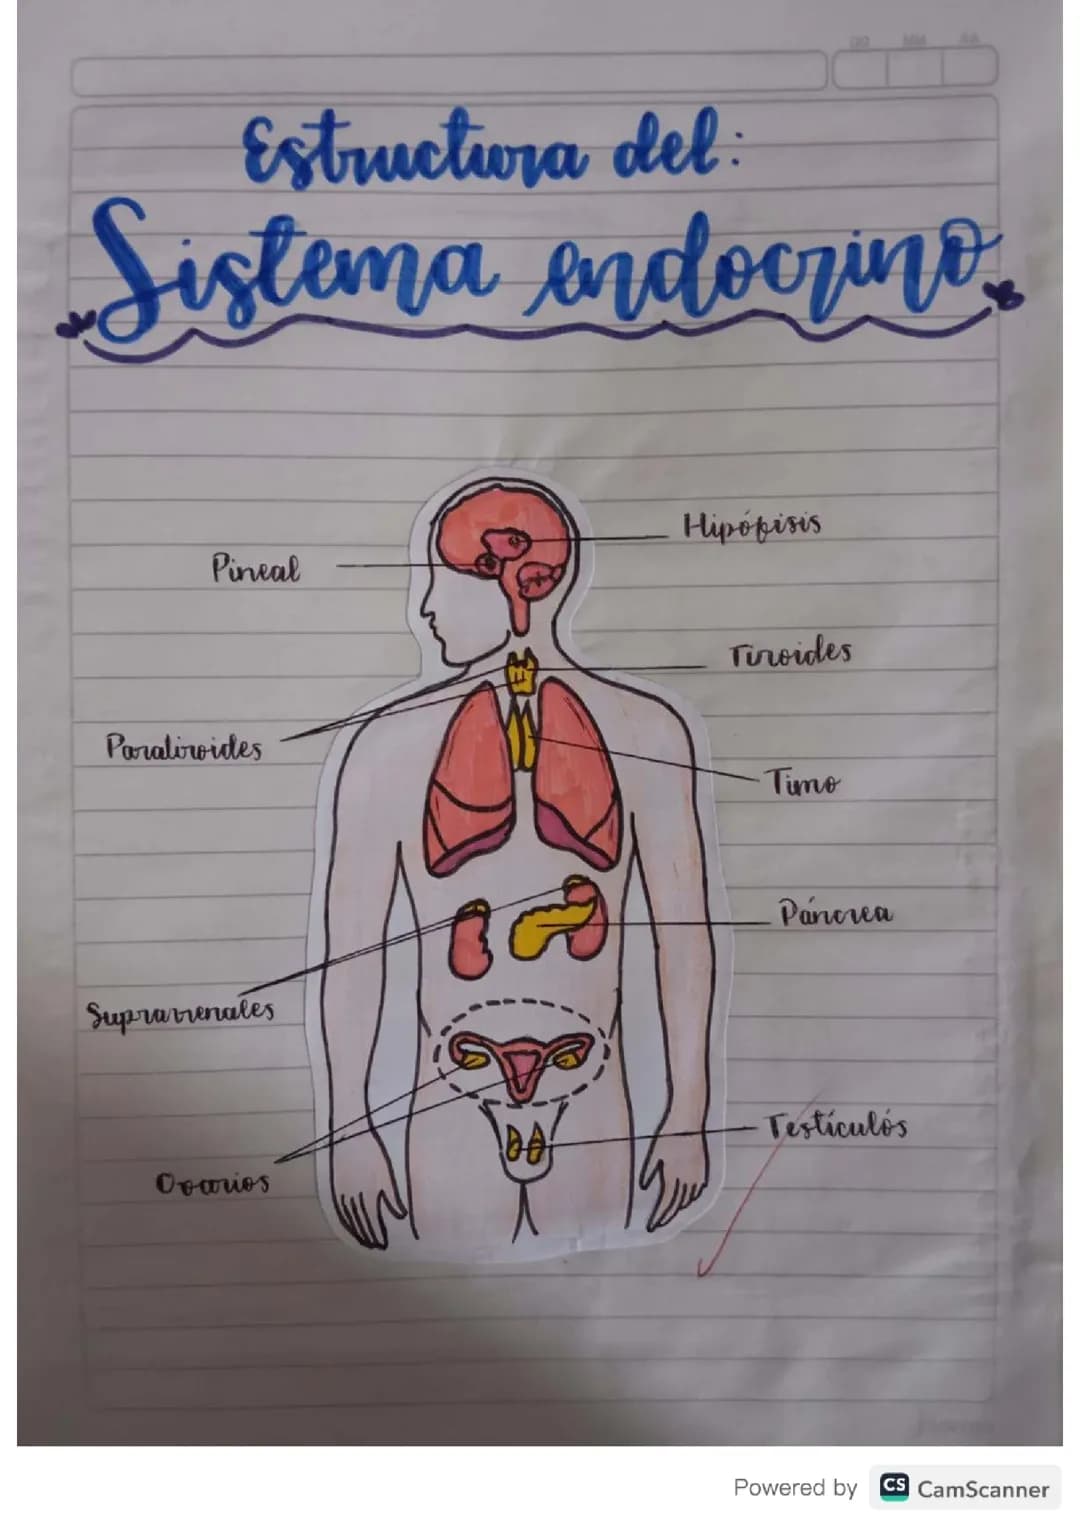 Estructura del:
Sistema endocrino
Hipófisis
Pineal
Tiroides
Paratiroides
Timo
Páncrea
Suprarrenales
Testículos
Ovarios
Powered by CS CamScanner